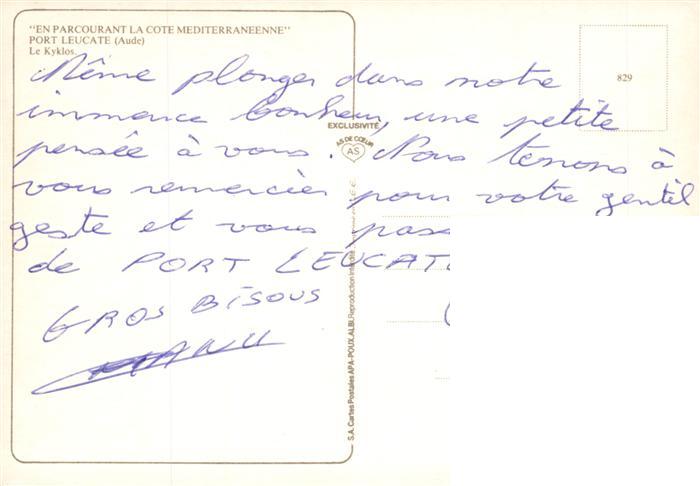 "EN PARCOURANT LA COTE MEDITERRANEENNE"
PORT LEUCATE (Aude)
Le Kyklos.
829
Même plonger dans notre
immence bonheur, une petite
EXCLUSIVITÉ
AS DE CŒUR
AS
pensée à vous. Nous tenons à
vous remercier pour votre gentil
geste et vous pass
de PORT LEUCAT
GROS BISOUS
S.A. Cartes Postales APA-POUX, ALBI, Reproduction Interdite